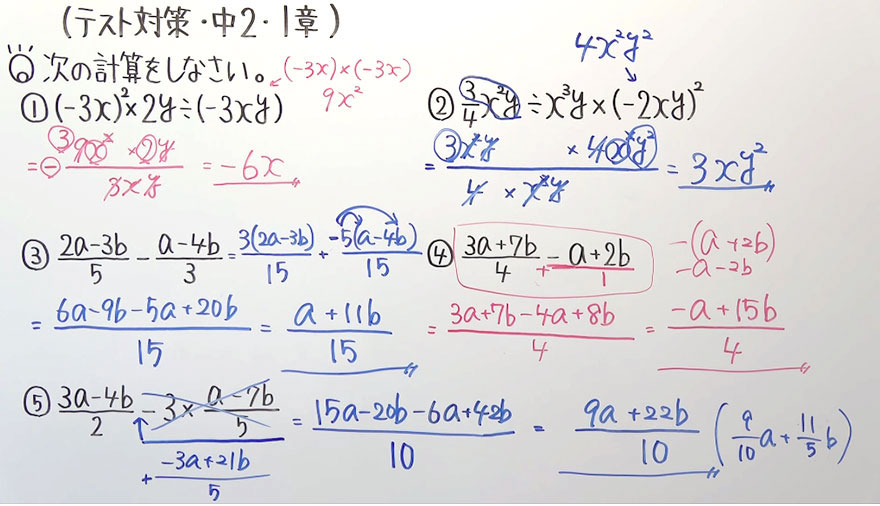 (テスト対策・中2・1章)
次の計算をしなさい。
(-3x)×(-3x)
9x²
4x²y²
① (-3x)²×2y÷(-3xy)
= - 3 9x² ×2y / 3xy = -6x
② 3/4 x²y ÷ x³y × (-2xy)²
= 3x²y × 4x²y² / 4 × x³y = 3xy²
③ 2a-3b / 5 - a-4b / 3 = 3(2a-3b) / 15 + -5(a-4b) / 15
= 6a-9b-5a+20b / 15 = a+11b / 15
④ 3a+7b / 4 - a+2b + 1
-(a+2b)
-a-2b
= 3a+7b-4a+8b / 4 = -a+15b / 4
⑤ 3a-4b / 2 - 3 × a-7b / 5 = 15a-20b-6a+42b / 10 = 9a+22b / 10 (9/10 a + 11/5 b)
+ -3a+21b / 5